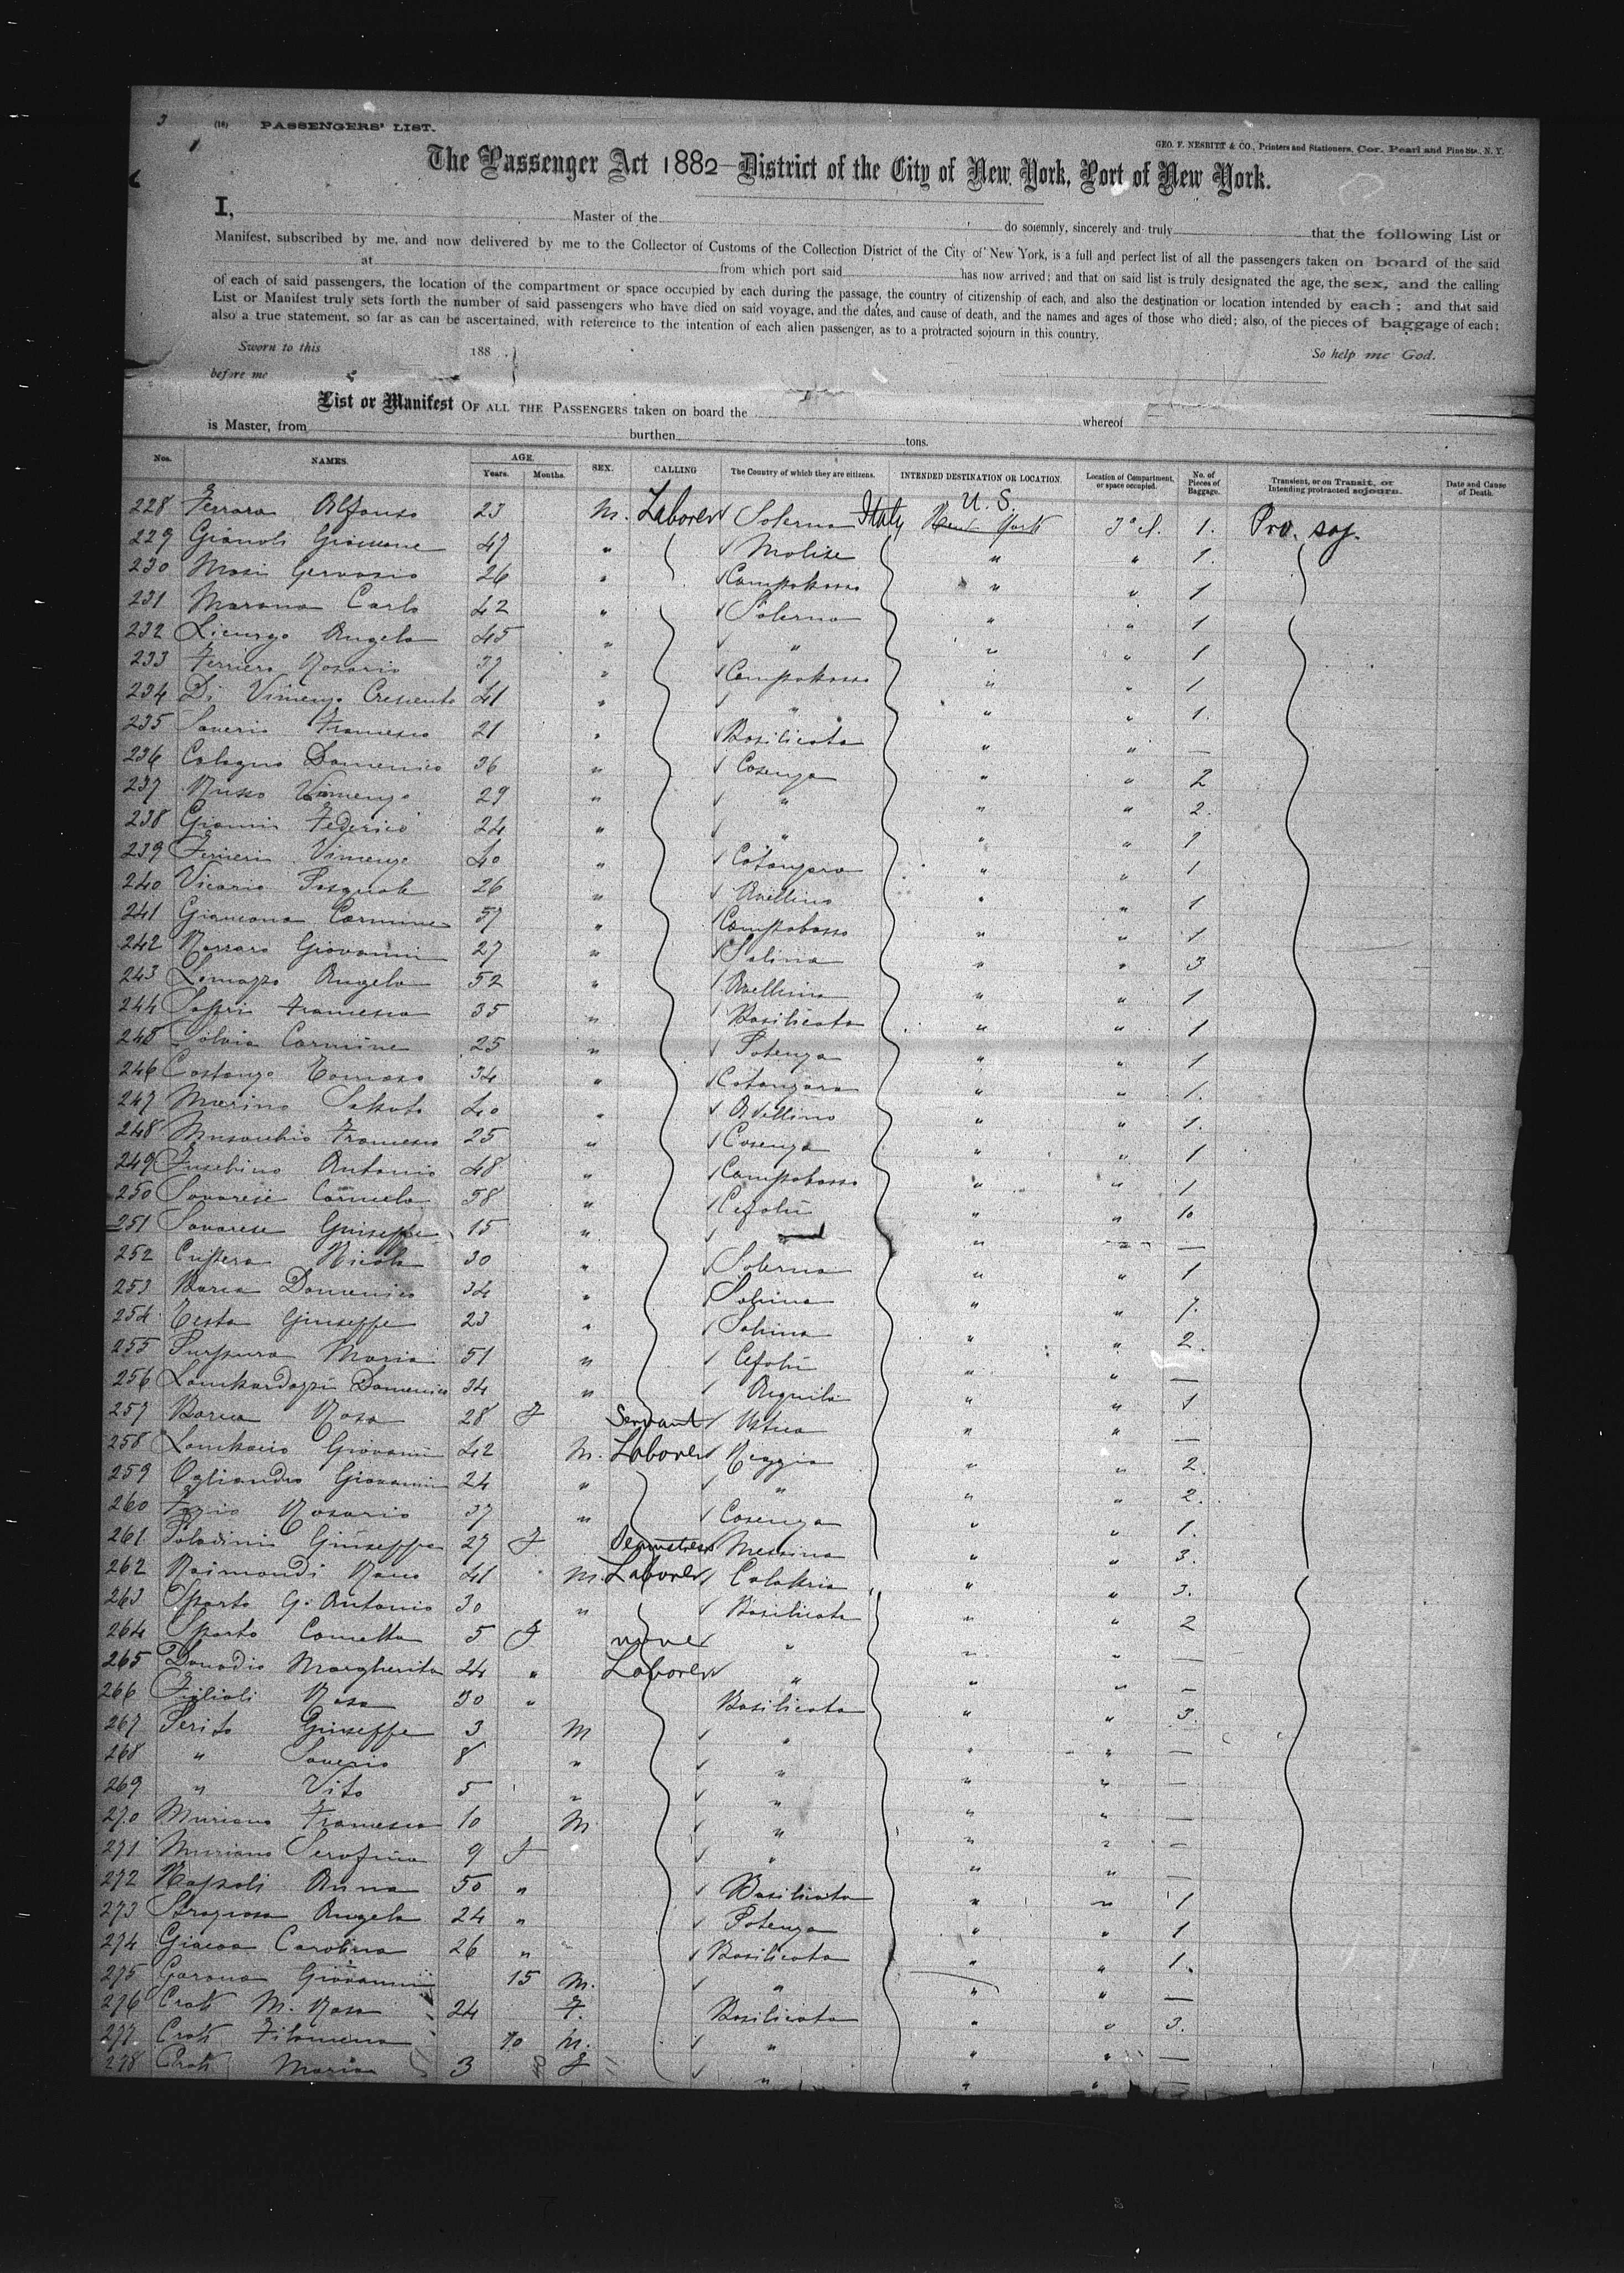 3
(18) PASSENGERS' LIST.
GEO. F. NESBITT & CO., Printers and Stationers, Cor. Pearl and Pine Sts., N. Y.
The Passenger Act 1882—District of the City of New York, Port of New York.
I, Master of the do solemnly, sincerely and truly that the following List or
Manifest, subscribed by me, and now delivered by me to the Collector of Customs of the Collection District of the City of New York, is a full and perfect list of all the passengers taken on board of the said
at from which port said has now arrived; and that on said list is truly designated the age, the sex, and the calling
of each of said passengers, the location of the compartment or space occupied by each during the passage, the country of citizenship of each, and also the destination or location intended by each; and that said
List or Manifest truly sets forth the number of said passengers who have died on said voyage, and the dates, and cause of death, and the names and ages of those who died; also, of the pieces of baggage of each;
also a true statement, so far as can be ascertained, with reference to the intention of each alien passenger, as to a protracted sojourn in this country.
Sworn to this 188 So help me God.
before me
List or Manifest OF ALL THE PASSENGERS taken on board the whereof
is Master, from burthen tons.
Nos. NAMES. AGE. Years. Months. SEX. CALLING The Country of which they are citizens. INTENDED DESTINATION OR LOCATION. Location of Compartment, or space occupied. No. of Pieces of Baggage. Transient, or on Transit, or Intending protracted sojourn. Date and Cause of Death.
228 Ferrara Alfonso 23 M. Laborer Salerno Italy U. S. New York 3ª cl. 1. Pro. soj.
229 Gianoli 47 " Molise " " 1.
230 Masi Gervasio 26 " Campobasso " " 1
231 Marana Carlo 42 " Salerno " " 1
232 Angelo 45 " " " " 1
233 Ferriero Rosario 37 " Campobasso " " 1
234 Di 41 " " " " 1.
235 Saverio Francesco 21 " Basilicata " " —
236 Domenico 36 " Cosenza " " 2
237 Russo Vincenzo 29 " " " " 2.
238 Giannini Federico 24 " " " " 1
239 Vincenzo 40 " Catanzaro " " 1
240 Vicario Pasquale 26 " Avellino " " 1
241 Giancana Carmine 57 " Campobasso " " 1
242 Giovanni 27 " Salina " " 3
243 Angelo 52 " Avellino " " 1
244 Francesco 35 " Basilicata " " 1
245 Carmine 25 " Potenza " " 1
246 Costanzo Tomaso 34 " Catanzaro " " 1.
247 Marino 40 " Avellino " " 1.
248 Musacchio Francesco 25 " Cosenza " " 1
249 Antonio 48 " Campobasso " " 1
250 Savarese Carmelo 58 " Cefalù " " 10
251 Savarese Giuseppe 15 " " " " —
252 Nicola 30 " Salerno " " 1
253 Barca Domenico 34 " Salina " " 7.
254 Testa Giuseppe 23 " Salina " " 2.
255 Purpura Maria 51 " Cefalù " " —
256 Domenico 34 " Aquila " " 1
257 Barca Rosa 28 F Servant Ustica " " —
258 Giovanni 42 M. Laborer Reggio " " 2.
259 Giovanni 24 " " " " 2.
260 Rosario 37 " Cosenza " " 1.
261 Paladini Giuseppa 27 F Seamstress Messina " " 3.
262 Raimondi 41 M. Laborer Calabria " " 3.
263 G. Antonio 30 " Basilicata " " 2
264 5 F none " " " —
265 Donadio Margherita 24 " Laborer " " " —
266 Figlioli Rosa 30 " Basilicata " " 3.
267 Perito Giuseppe 3 M " " " —
268 " Saverio 8 " " " " —
269 " Vito 5 " " " " —
270 Muriano Francesco 10 M " " " —
271 Muriano Serafina 9 F " " " —
272 Anna 50 " Basilicata " " 1
273 Angela 24 " Potenza " " 1
274 Carolina 26 " Basilicata " " 1.
275 Giovanni 15 M. " " " —
276 M. Rosa 24 F. Basilicata " " 3.
277 Filomena 10 M. " " " —
278 Maria 3 F " " " —